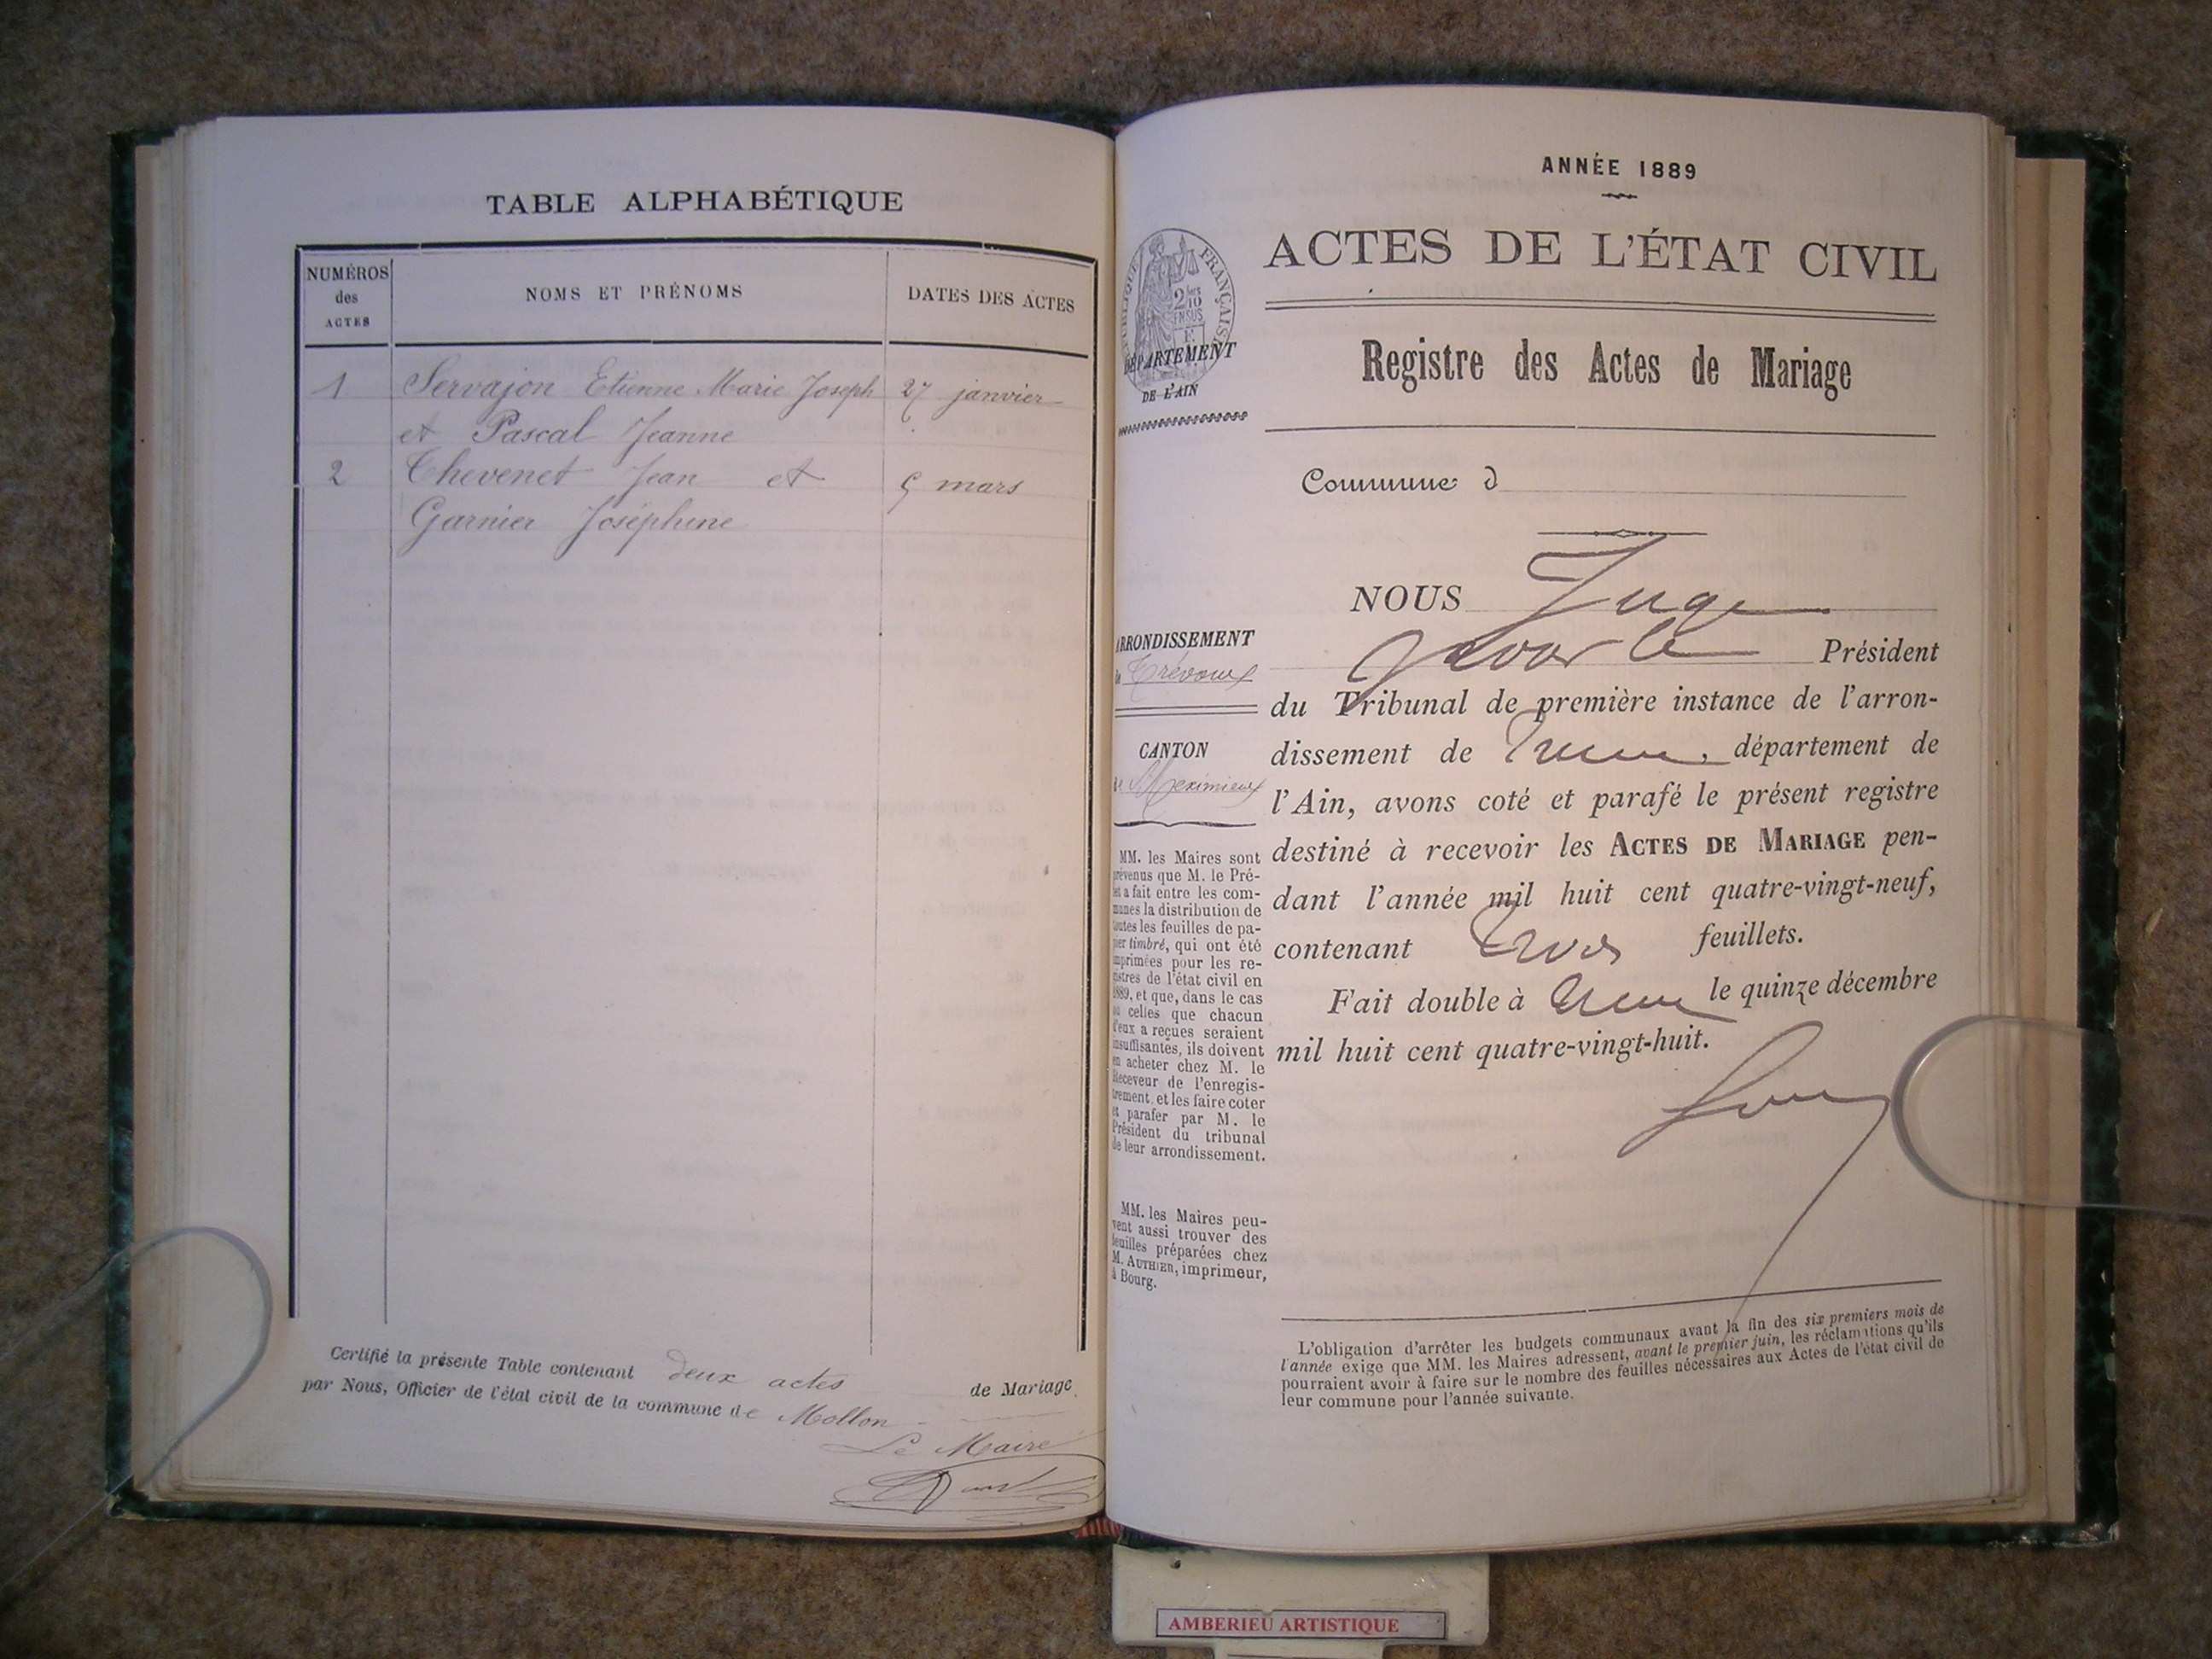 TABLE ALPHABÉTIQUE
NUMÉROS
des
ACTES
NOMS ET PRÉNOMS
DATES DES ACTES
1 Servajon Etienne Marie Joseph 27 janvier
et Pascal Jeanne
2 Chevenet Jean et 5 mars
Garnier Joséphine
Certifié la présente Table contenant deux actes de Mariage
par Nous, Officier de l'état civil de la commune de Mollon
Le Maire
ANNÉE 1889
ACTES DE L'ÉTAT CIVIL
RÉPUBLIQUE FRANÇAISE
DÉPARTEMENT
DE L'AIN
Registre des Actes de Mariage
Commune d
NOUS Juge
pour le Président
du Tribunal de première instance de l'arron-
dissement de , département de
l'Ain, avons coté et parafé le présent registre
destiné à recevoir les ACTES DE MARIAGE pen-
dant l'année mil huit cent quatre-vingt-neuf,
contenant trois feuillets.
Fait double à le quinze décembre
mil huit cent quatre-vingt-huit.
ARRONDISSEMENT
de Trévoux
CANTON
de Meximieux
MM. les Maires sont
prévenus que M. le Pré-
fet a fait entre les com-
munes la distribution de
toutes les feuilles de pa-
pier timbré, qui ont été
imprimées pour les re-
gistres de l'état civil en
1889, et que, dans le cas
où celles que chacun
d'eux a reçues seraient
insuffisantes, ils doivent
en acheter chez M. le
Receveur de l'enregis-
trement, et les faire coter
et parafer par M. le
Président du tribunal
de leur arrondissement.
MM. les Maires peu-
vent aussi trouver des
feuilles préparées chez
M. AUTHIER, imprimeur,
à Bourg.
L'obligation d'arrêter les budgets communaux avant la fin des six premiers mois de
l'année exige que MM. les Maires adressent, avant le premier juin, les réclamations qu'ils
pourraient avoir à faire sur le nombre des feuilles nécessaires aux Actes de l'état civil de
leur commune pour l'année suivante.
AMBERIEU ARTISTIQUE